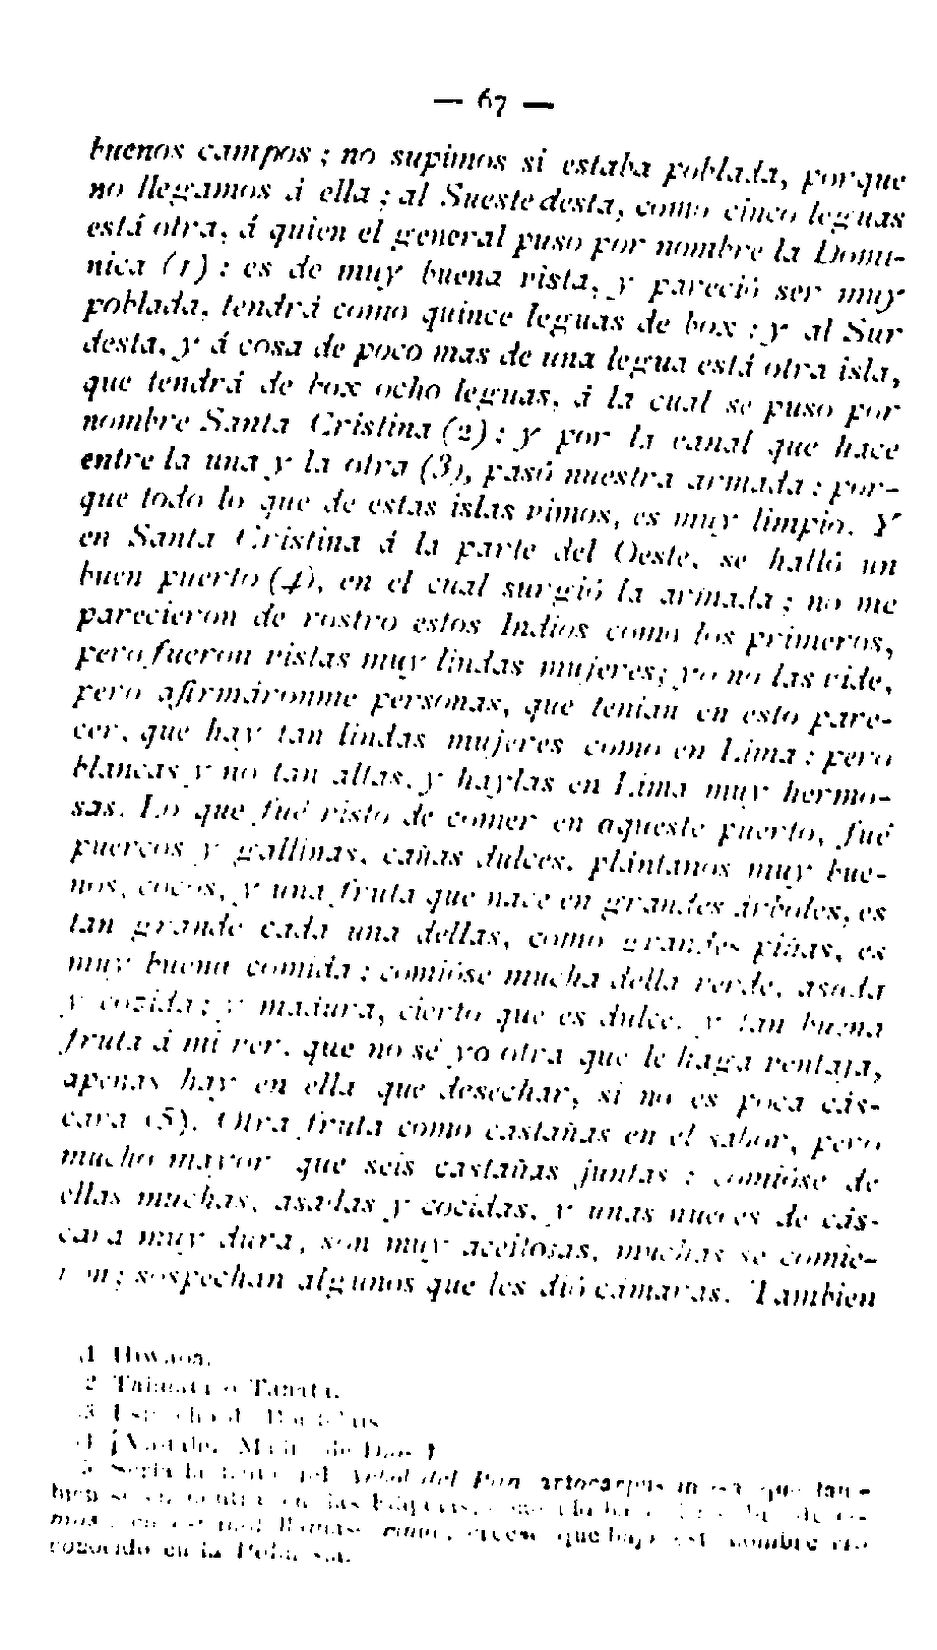 — 67 —
buenos campos ; no supimos si estaba poblada, porque
no llegamos á ella ; al Sueste desta, como cinco leguas
está otra, á quien el general puso por nombre la Domi-
nica (1) : es de muy buena vista, y pareció ser muy
poblada, tendrá como quince leguas de box ; y al Sur
desta, y á cosa de poco mas de una legua está otra isla,
que tendrá de box ocho leguas, á la cual se puso por
nombre Santa Cristina (2) ; y por la canal que hace
entre la una y la otra (3), pasó nuestra armada : por-
que todo lo que de estas islas vimos, es muy limpio. Y
en Santa Cristina á la parte del Oeste, se halló un
buen puerto (4), en el cual surgió la armada ; no me
parecieron de rostro estos Indios como los primeros,
pero fueron vistas muy lindas mujeres; yo no las vide,
pero afirmáronme personas, que tenian en esto pare-
cer, que hay tan lindas mujeres como en Lima ; pero
blancas y no tan altas, y haylas en Lima muy hermo-
sas. Lo que fué visto de comer en aqueste puerto, fué
puercos y gallinas, cañas dulces, plántanos muy bue-
nos, cocos, y una fruta que nace en grandes árboles, es
tan grande cada una dellas, como grandes piñas, es
muy buena comida : comióse mucha della verde, asada
y cozida ; y madura, cierto que es dulce, y tan buena
fruta á mi ver, que no sé yo otra que le haga ventaja,
apenas hay en ella que desechar, si no es poca cás-
cara (5). Otra fruta como castañas en el sabor, pero
mucho mayor que seis castañas juntas : comióse de
ellas muchas, asadas y cocidas, y unas nueces de cás-
cara muy dura, son muy aceitosas, muchas se comie-
ron ; sospechan algunos que les dió cámaras. Tambien
1 Hiwaoa.
2 Tahuata o Tauata.
3
4 Madre de Dios
5 Sería la fruta del Arbol del Pan artocarpus que tam-
bien se encuentra en las
llamase rima, creese que bajo este nombre es
conocido en la Polinesia.